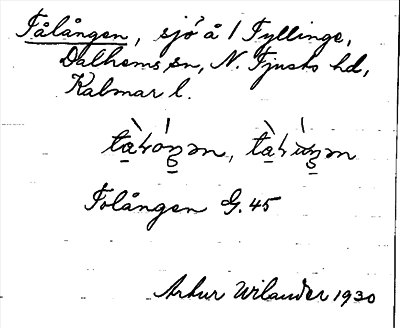 Tålången, sjö å 1 Fyllinge,
Dalhems sn, N. Tjusts hd,
Kalmar l.
Tolången G. 45
Artur Wilander 1930